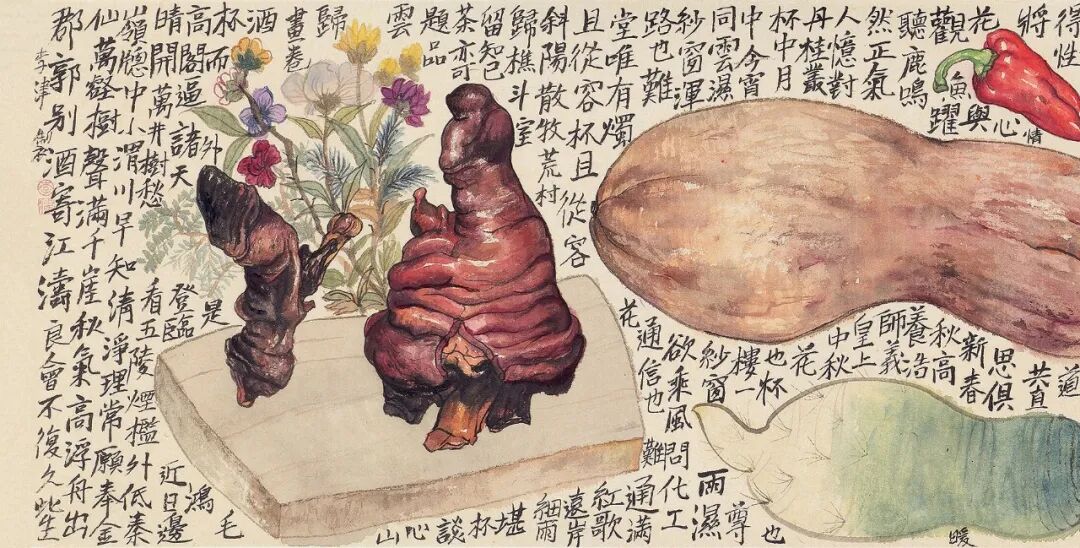 得性
將
花
觀
魚與心情
聽鹿鳴
躍
然正氣
人憶對
丹桂叢
杯中月
中今宵
同雲濕
紗窗渾
路也難
堂唯有燭
且從容杯且從容
斜陽散牧荒村
歸樵斗室
留知己
茶亦可
題品
雲
歸
畫卷
酒
杯而
高閣逼諸天外
登臨是
晴開萬井樹愁
看五陵煙檻外低秦
嶺窗中小渭川早知清淨理常願奉金
仙萬壑樹聲滿千崖秋氣高浮舟出
郡郭別酒寄江濤良會不復久此生
李津
道
共宜
思俱
新春
秋高
養浩
師義
皇上
中秋
花
也杯
樓上
紗窗
欲乘風問化工
通信也難
花
暖
也
尊
雨濕
通滿
紅歌
遠岸
細雨
堪
杯
談
心
山
鴻毛
近日邊